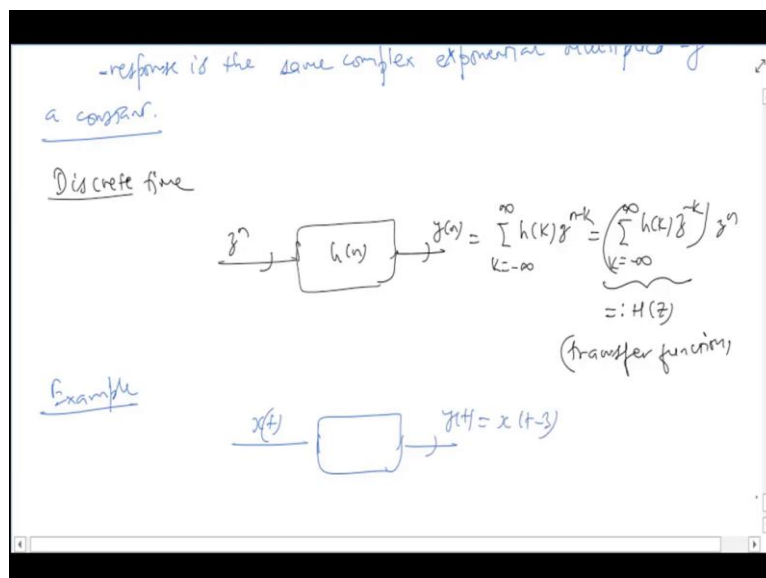 -response is the same complex exponential multiplied by
a constant.
Discrete time
z^n h(n) y(n) = ∑_{k=-∞}^{∞} h(k) z^{n-k} = (∑_{k=-∞}^{∞} h(k) z^{-k}) z^n
=: H(z)
(transfer function)
Example
x(t) y(t) = x(t-3)